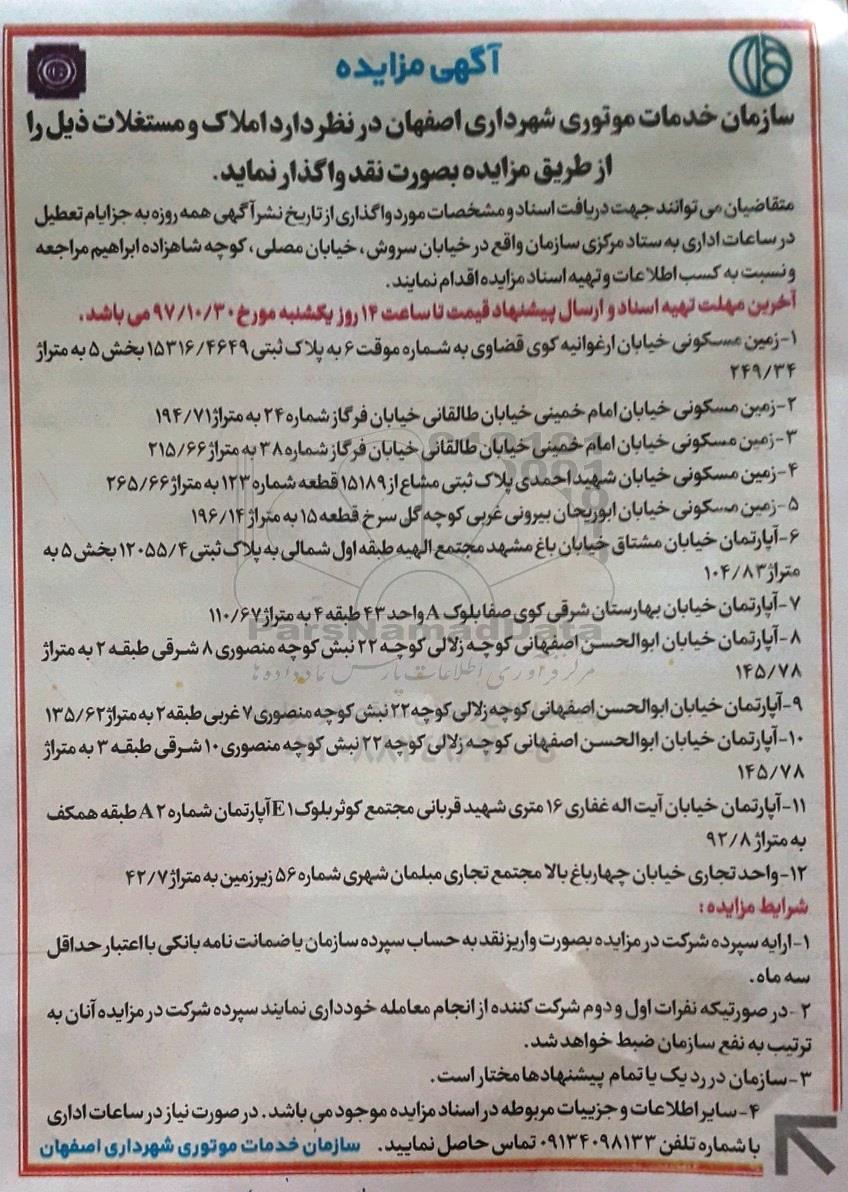 آگهی مزایده
سازمان خدمات موتوری شهرداری اصفهان در نظر دارد املاک و مستغلات ذیل را
از طریق مزایده بصورت نقد واگذار نماید.
متقاضیان می توانند جهت دریافت اسناد و مشخصات مورد واگذاری از تاریخ نشر آگهی همه روزه به جز ایام تعطیل
در ساعات اداری به ستاد مرکزی سازمان واقع در خیابان سروش، خیابان مصلی، کوچه شاهزاده ابراهیم مراجعه
و نسبت به کسب اطلاعات و تهیه اسناد مزایده اقدام نمایند.
آخرین مهلت تهیه اسناد و ارسال پیشنهاد قیمت تا ساعت ۱۴ روز یکشنبه مورخ ۹۷/۱۰/۳۰ می باشد.
۱-زمین مسکونی خیابان ارغوانیه کوی قضاوی به شماره موقت ۶ به پلاک ثبتی ۱۵۳۱۶/۴۶۴۹ بخش ۵ به متراژ
۲۴۹/۳۴
۲-زمین مسکونی خیابان امام خمینی خیابان طالقانی خیابان فرگاز شماره ۲۴ به متراژ ۱۹۴/۷۱
۳-زمین مسکونی خیابان امام خمینی خیابان طالقانی خیابان فرگاز شماره ۳۸ به متراژ ۲۱۵/۶۶
۴-زمین مسکونی خیابان شهید احمدی پلاک ثبتی مشاع از ۱۵۱۸۹ قطعه شماره ۱۲۳ به متراژ ۲۶۵/۶۶
۵-زمین مسکونی خیابان ابوریحان بیرونی غربی کوچه گل سرخ قطعه ۱۵ به متراژ ۱۹۶/۱۴
۶-آپارتمان خیابان مشتاق خیابان باغ مشهد مجتمع الهیه طبقه اول شمالی به پلاک ثبتی ۱۲۰۵۵/۴ بخش ۵ به
متراژ ۱۰۴/۸۳
۷-آپارتمان خیابان بهارستان شرقی کوی صفا بلوک A واحد ۴۳ طبقه ۴ به متراژ ۱۱۰/۶۷
ParsNamadData
۸-آپارتمان خیابان ابوالحسن اصفهانی کوچه زلالی کوچه ۲۲ نبش کوچه منصوری ۸ شرقی طبقه ۲ به متراژ
۱۴۵/۷۸
۹-آپارتمان خیابان ابوالحسن اصفهانی کوچه زلالی کوچه ۲۲ نبش کوچه منصوری ۷ غربی طبقه ۲ به متراژ ۱۳۵/۶۲
۱۰-آپارتمان خیابان ابوالحسن اصفهانی کوچه زلالی کوچه ۲۲ نبش کوچه منصوری ۱۰ شرقی طبقه ۳ به متراژ
۱۴۵/۷۸
۱۱-آپارتمان خیابان آیت اله غفاری ۱۶ متری شهید قربانی مجتمع کوثر بلوک E۱ آپارتمان شماره A۲ طبقه همکف
به متراژ ۹۲/۸
۱۲-واحد تجاری خیابان چهارباغ بالا مجتمع تجاری مبلمان شهری شماره ۵۶ زیرزمین به متراژ ۴۲/۷
شرایط مزایده:
۱-ارایه سپرده شرکت در مزایده بصورت واریز نقد به حساب سپرده سازمان یا ضمانت نامه بانکی با اعتبار حداقل
سه ماه.
۲-در صورتیکه نفرات اول و دوم شرکت کننده از انجام معامله خودداری نمایند سپرده شرکت در مزایده آنان به
ترتیب به نفع سازمان ضبط خواهد شد.
۳-سازمان در رد یک یا تمام پیشنهادها مختار است.
۴-سایر اطلاعات و جزییات مربوطه در اسناد مزایده موجود می باشد. در صورت نیاز در ساعات اداری
با شماره تلفن ۰۹۱۳۴۰۹۸۱۳۳ تماس حاصل نمایید.
سازمان خدمات موتوری شهرداری اصفهان